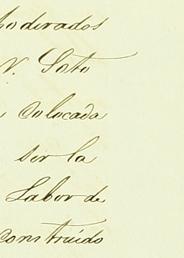 poderados
N. Soto
colocada
ser la
Labor de
construido